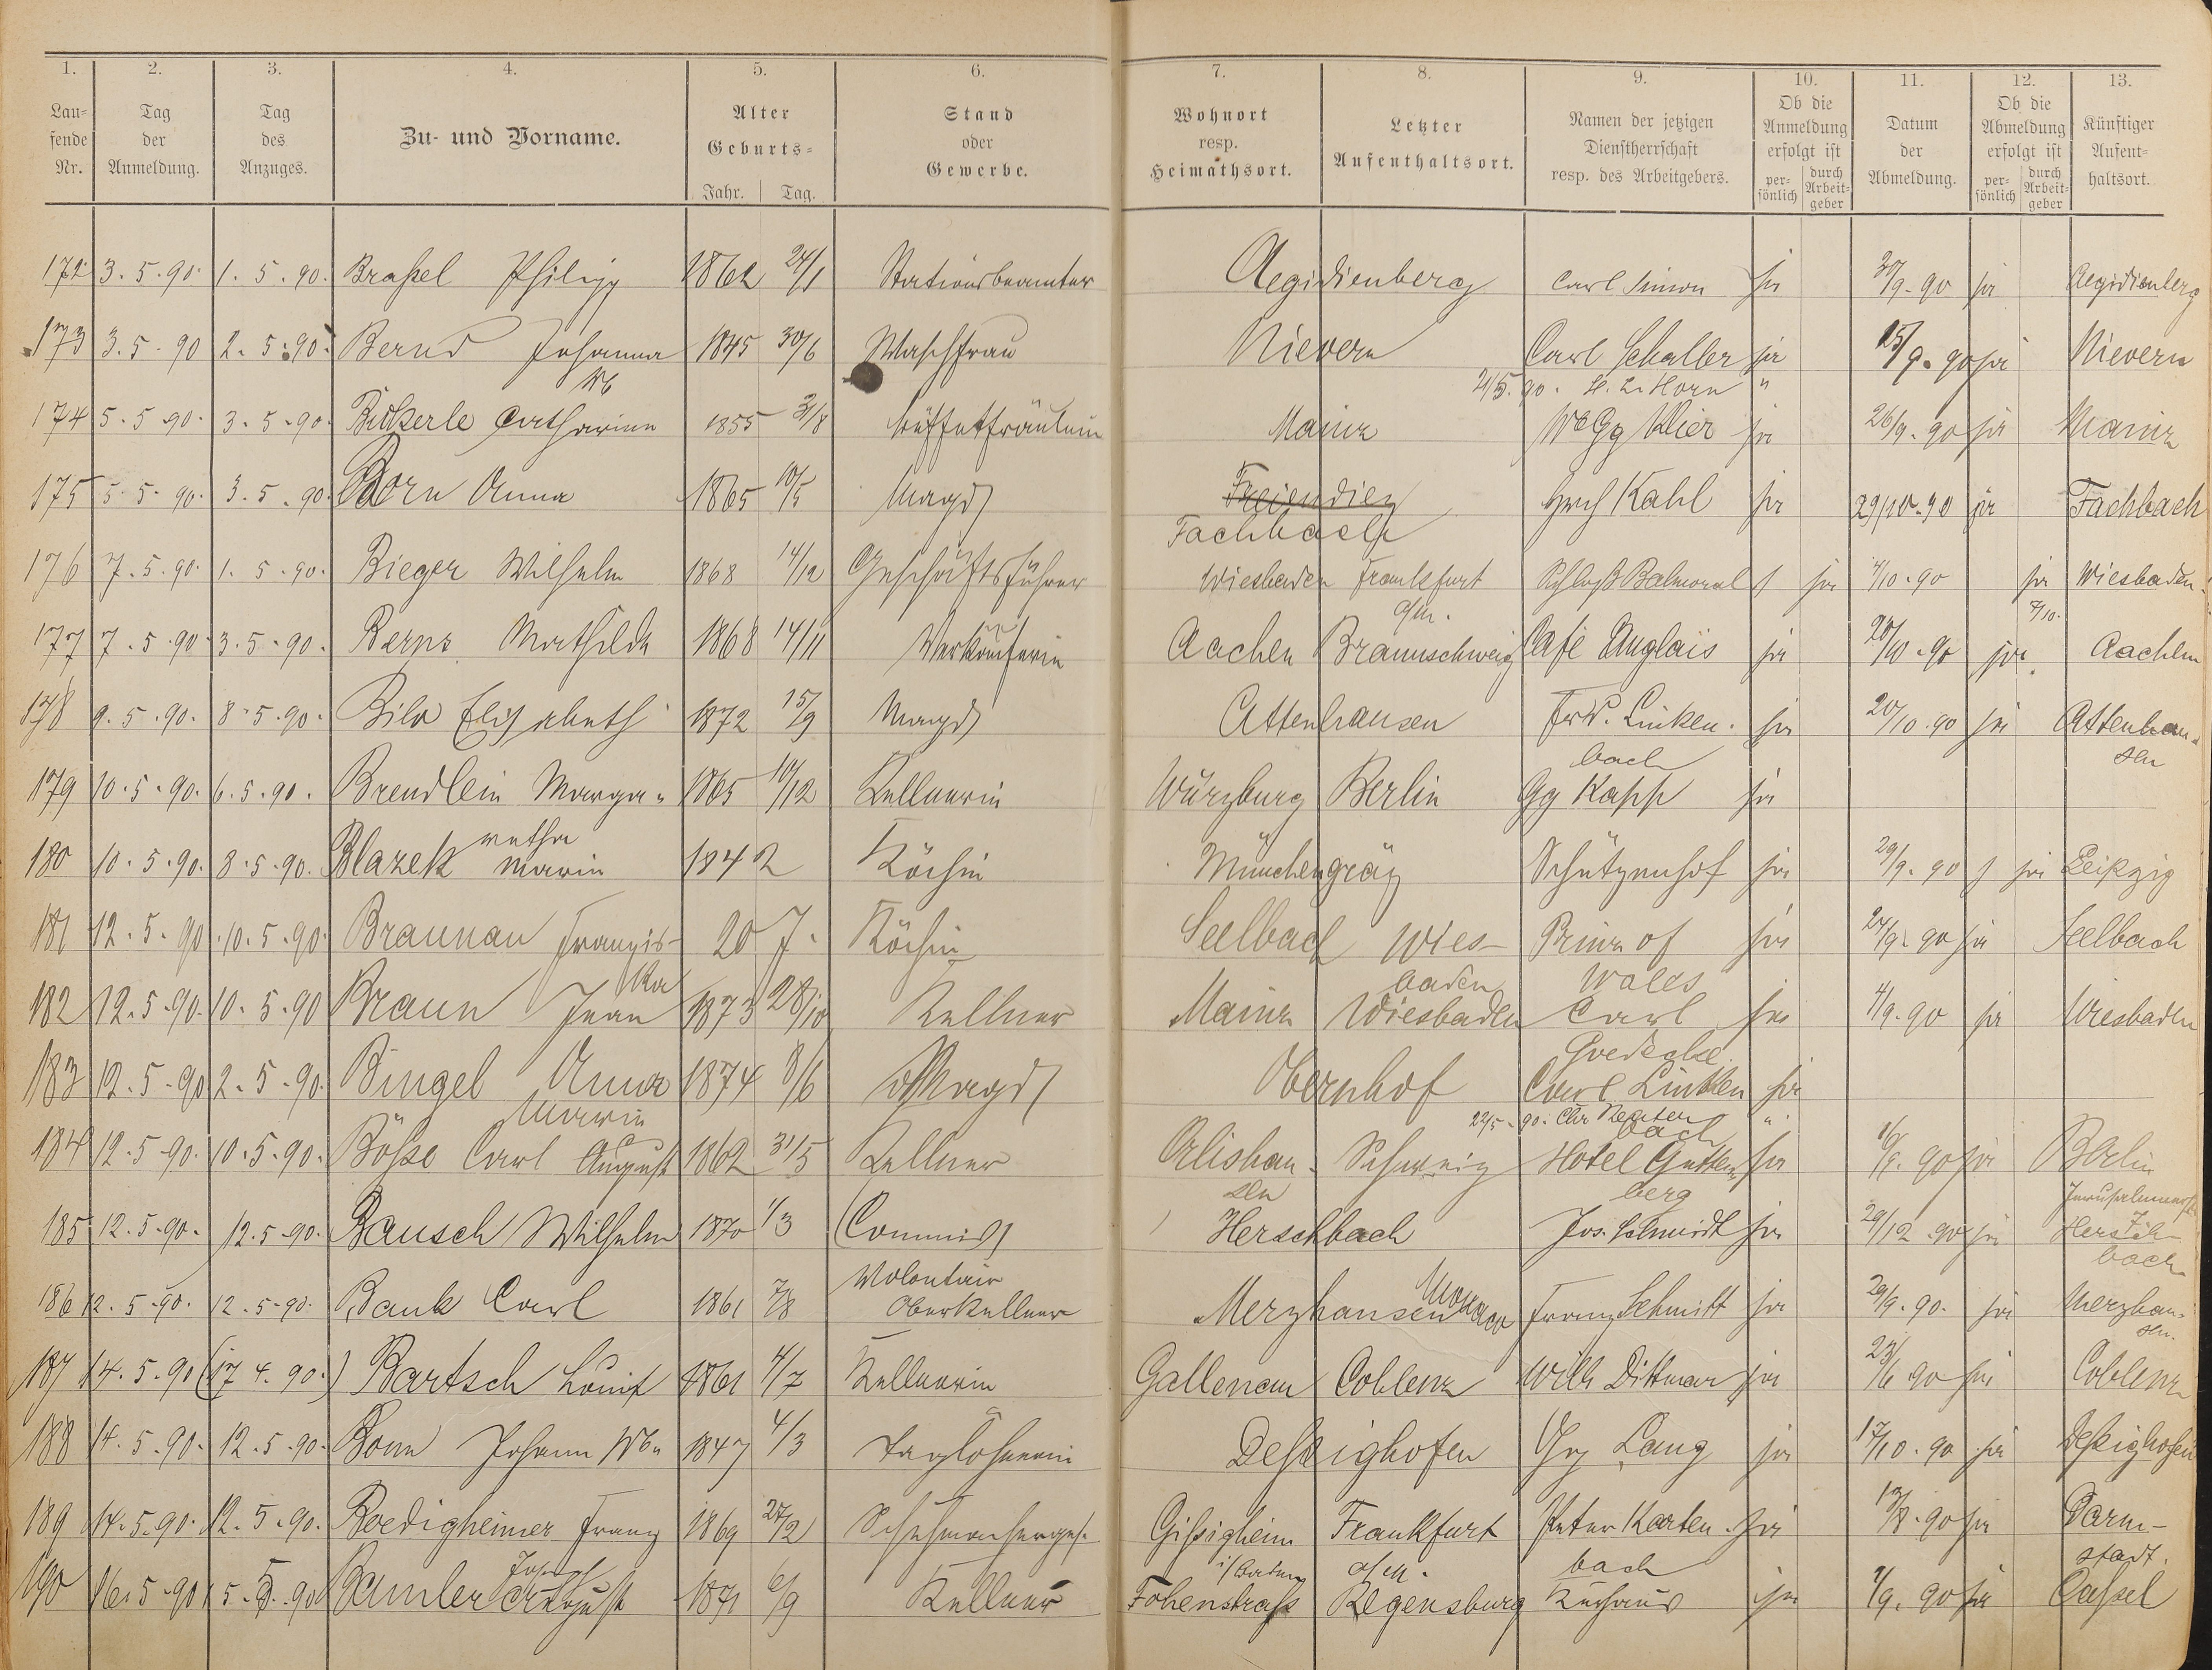 1. 2. 3. 4. 5. 6. 7. 8. 9. 10. 11. 12. 13.
Laufende Nr. Tag der Anmeldung. Tag des Anzuges. Zu- und Vorname. Alter Geburts- Jahr. Tag. Stand oder Gewerbe. Wohnort resp. Heimathsort. Letzter Aufenthaltsort. Namen der jetzigen Dienstherrschaft resp. des Arbeitgebers. Ob die Anmeldung erfolgt ist persönlich durch Arbeitgeber Datum der Abmeldung. Ob die Abmeldung erfolgt ist persönlich durch Arbeitgeber Künftiger Aufenthaltsort.
172 3.5.90. 1.5.90. Braßel Philipp 1862 24/1 Stationsbeamter Aegidienberg Carl Simon ja 30/9.90 ja Aegidienberg
173 3.5.90 2.5.90. Bernd Johanna 1845 30/6 Waschfrau Nievern Carl Schaller ja 15/9.90 ja Nievern
Wb 21/5.90. H. L. Horn "
174 5.5.90. 3.5.90. Catharina 1855 31/8 Büffetfräulein Mainz We Gg Klier ja 26/9.90 ja Mainz
175 5.5.90. 3.5.90. Born Anna 1865 10/5 Magd Freiendiez Hrch Kahl ja 29/10.90 ja Fachbach
Fachbach
176 7.5.90. 1.5.90. Bieger Wilhelm 1868 14/12 Geschäftsführer Wiesbaden Frankfurt Schloß Balmoral / ja 7/10.90 ja Wiesbaden
a/M. 7/10.
177 7.5.90 3.5.90. Berns Mathilde 1868 14/11 Verkäuferin Aachen Braunschweig Cafe Anglais ja 20/10.90 ja. Aachen
178 9.5.90. 8.5.90. Bilo Elisabeth 1872 15/9 Magd Attenhausen Ferd. Linken- ja 20/10.90 ja Attenhau-
bach sen
179 10.5.90. 6.5.90. Brendlein Marga- 1865 10/12 Kellnerin Würzburg Berlin Gg Kapp ja
retha
180 10.5.90. 8.5.90. Blazek Marie 1842 Köchin Münchengräz Schützenhof ja 29/9.90 / ja Leipzig
181 12.5.90 10.5.90. Braunau Franzis- 20 J. Köchin Seelbach Wies- Prinz of ja 24/9.90 ja Seelbach
ka baden Wales
182 12.5.90. 10.5.90 Braun Jean 1873 28/10 Kellner Mainz Wiesbaden Carl ja 4/9.90 ja Wiesbaden
Goedecke.
183 12.5.90 2.5.90. Bingel Anna 1874 8/6 Magd Obernhof Carl Linken ja
Marie 22/5.90. Chr bach "
184 12.5.90. 10.5.90. Böße Carl August 1862 31/5 Kellner Olishau- Schweiz Hotel Gutten- ja 16/9.90 ja Berlin
sen berg
185 12.5.90. 12.5.90. Bausch Wilhelm 1870 1/3 Commis Herschbach Jos. Schmidt ja 29/12 90 ja Hersch-
bach
Volontair
186 12.5.90. 12.5.90. Bank Carl 1861 7/8 Oberkellner Merzhausen Monaco Franz Schmitt ja 29/9.90. ja Merzhau-
sen.
187 14.5.90 (17 4.90.) Bartsch Louise 1861 4/7 Kellnerin Gallenau Coblenz Wilh Dittmar ja 23/6 90 ja Coblenz
188 14.5.90. 12.5.90. Bonn Johann Wb. 1847 4/3 Taglöhnerin Deßighofen Gg Lang ja 17/10.90 ja Deßighofen
189 14.5.90. 12.5.90. Boedigheimer Franz 1869 27/2 Schuhmachergeh. Gißigheim Frankfurt Peter Karten- ja 13/8.90 ja Darm-
Josef i/Baden a/M. bach stadt.
190 16.5.90 15.5.90 Bamler August 1871 6/9 Kellner Fohenstraß Regensburg Kurhaus ja 7/9.90 ja Caßel